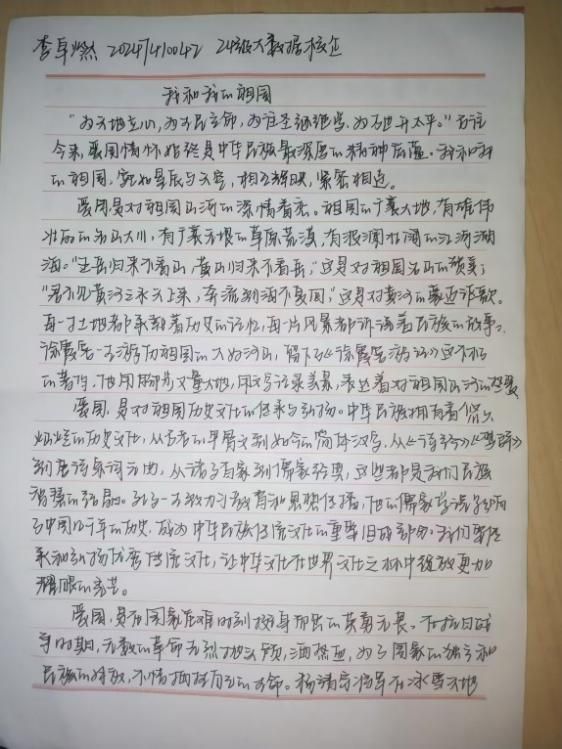 李卓燃 20247410042 24级大数据校企
我和我的祖国
“为天地立心，为生民立命，为往圣继绝学，为万世开太平。”古往
今来，爱国情怀始终是中华民族最深层的精神底蕴。我和我
的祖国，宛如星辰与天空，相互辉映，紧密相连。
爱国，是对祖国山河的深情眷恋。祖国的广袤大地，有雄伟
壮丽的名山大川，有广袤无垠的草原荒漠，有波澜壮阔的江河湖
海。“五岳归来不看山，黄山归来不看岳，”这是对祖国名山的赞美；
“君不见黄河之水天上来，奔流到海不复回，”这是对黄河的豪迈讴歌。
每一寸土地都承载着历史的记忆，每一片风景都诉说着民族的故事。
徐霞客一生游历祖国的大好河山，留下了《徐霞客游记》这不朽
的著作，他用脚步丈量大地，用文字记录美景，表达着对祖国山河的热爱
爱国，是对祖国历史文化的传承与弘扬。中华民族拥有着悠久
灿烂的历史文化，从古老的甲骨文到如今的简体汉字，从《诗经》《离骚》
到唐诗宋词元曲，从诸子百家到儒家经典，这些都是我们民族
智慧的结晶。孔子一生致力于教育和思想传播，他的儒家学说影响
了中国几千年的历史，成为中华民族传统文化的重要组成部分。我们要传
承和弘扬优秀传统文化，让中华文化在世界文化之林中绽放更加
耀眼的光芒。
爱国，是在国家危难时刻挺身而出的英勇无畏。在抗日战
争时期，无数的革命先烈抛头颅，洒热血，为了国家的独立和
民族的解放，不惜牺牲自己的生命。杨靖宇将军在冰雪天地